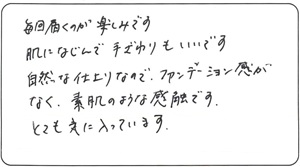 毎回届くのが楽しみです
肌になじんで手ざわりもいいです
自然な仕上りなので、ファンデーション感が
なく、素肌のような感触です。
とても気に入っています。